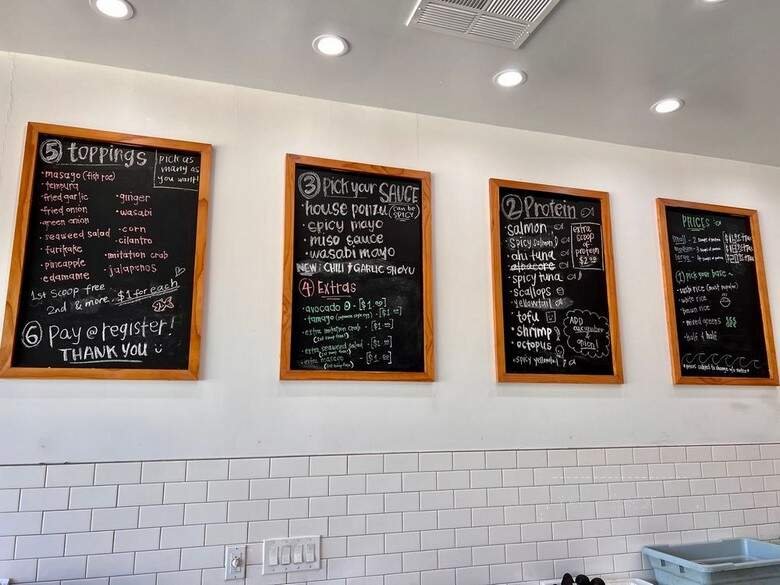 ⑤ toppings
pick as
many as
you want!
· masago (fish roe)
· tempura
· fried garlic
· fried onion
· green onion
· seaweed salad
· furikake
· pineapple
· edamame
· ginger
· wasabi
· corn
· cilantro
· imitation crab
· jalapenos
1st scoop free
2nd & more. $1 for each
⑥ Pay @ register!
THANK YOU
③ pick your SAUCE
· house ponzu (can be
SPICY)
· spicy mayo
· miso sauce
· wasabi mayo
NEW! CHILI GARLIC SHOYU
④ Extras
· avocado · [$1.00]
· tamago
· extra imitation crab · [$1.00]
· extra seaweed salad ·
② Protein
· salmon
· spicy salmon
· ahi tuna
· albacore
· spicy tuna
· scallops
· yellowtail
· tofu
· shrimp
· octopus
· spicy yellowtail
extra
scoop
of
protein
ADD
cucumber
onion!
PRICES
small - 2 scoops of protein
medium - 3 scoops of protein
large -
① pick your base ~
· white rice
· brown rice
· mixed greens
· half & half
*prices subject to change w/o notice*